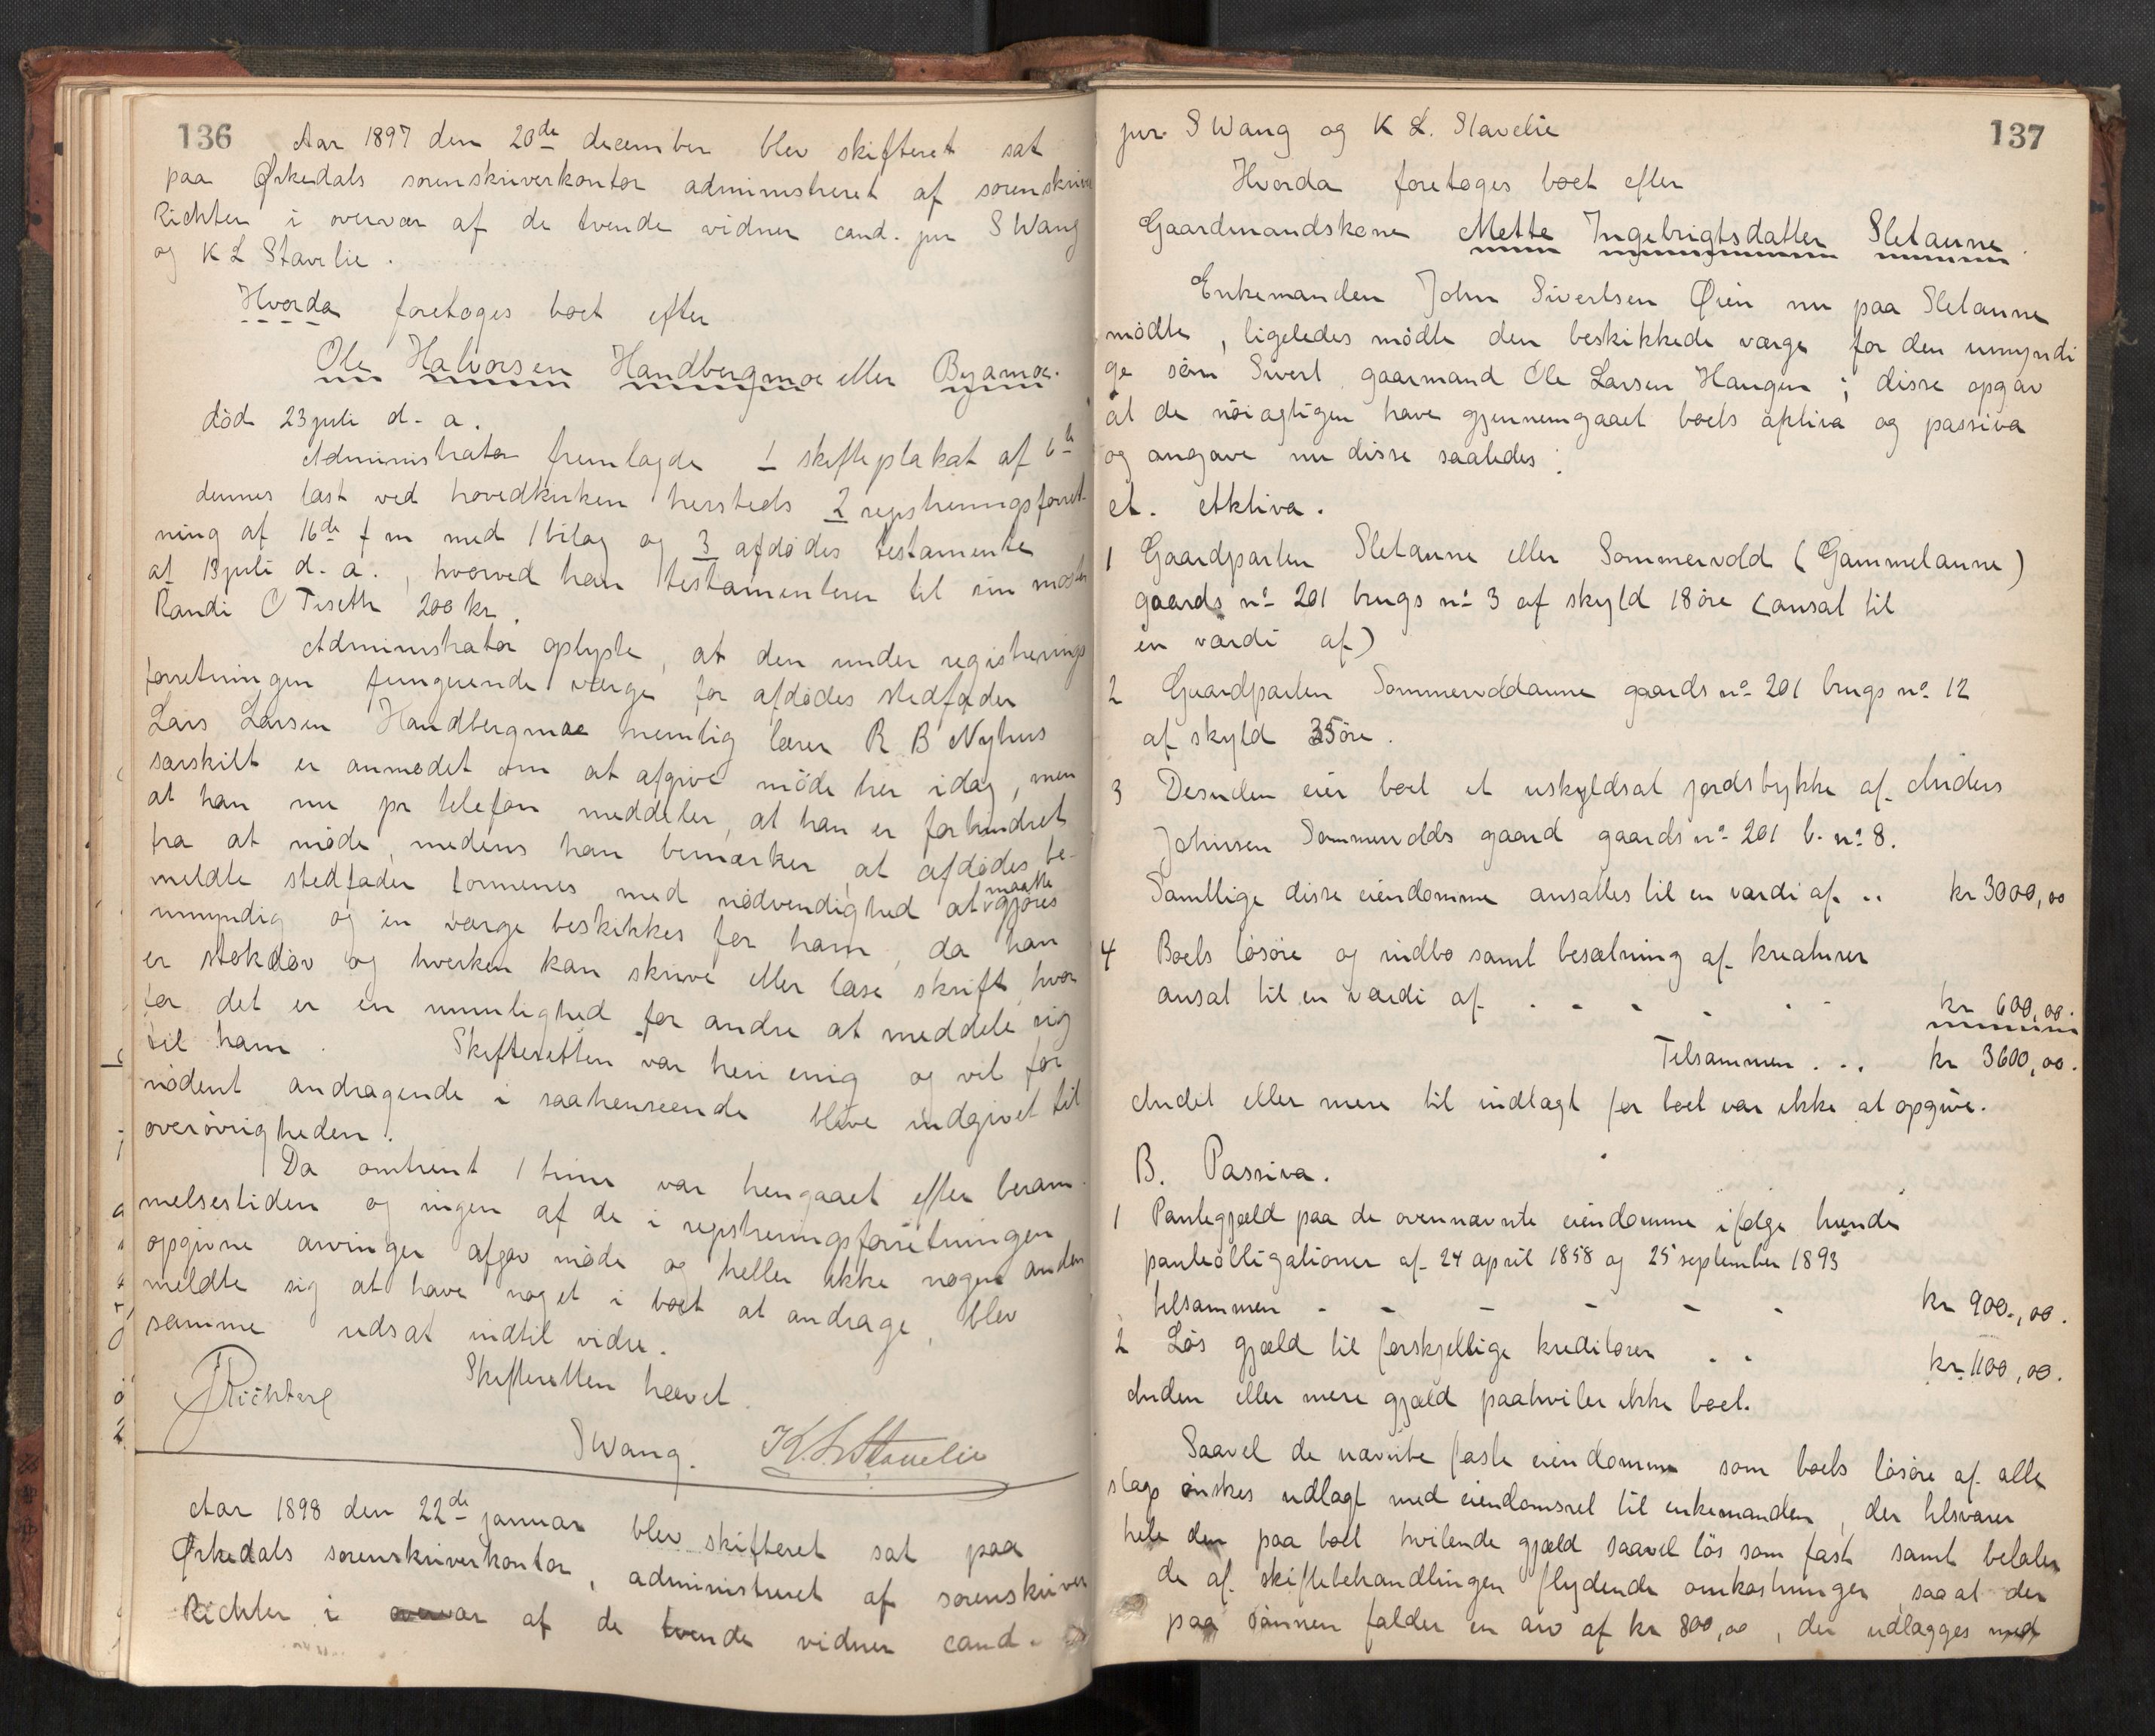 136
Aar 1897 den 20de december blev skifteret sat
paa Ørkedals sorenskriverkontor administreret af sorenskriver
Richter i overvær af de tvende vidner cand. jur S Wang
og K L Stavelie.
Hvorda foretoges boet efter
Ole Halvorsen Handbergmoe eller Byamoe.
död 23 juli d. a.
Administrator fremlagde 1 skifteplakat af 6te
dennes læst ved hovedkirken hersteds 2 registreringsforret-
ning af 16de f m med 1 bilag og 3 afdödes testamente
af 13 juli d. a., hvorved han testamenterer til sin moster
Randi O Tiseth 200 kr.
Administrator oplyste, at den under registrerings
forretningen fungerende værge for afdödes stedfader
Lars Larsen Handbergmoe nemlig lærer R B Nyhus
særskilt er anmodet om at afgive möde her idag, men
at han nu pr telefon meddeler, at han er forhindret
fra at möde, medens han bemærker, at afdödes be-
meldte stedfader formenes med nödvendighed at maatte gjöres
umyndig og en værge beskikkes for ham, da han
er stokdöv og hverken kan skrive eller læse skrift, hvor
for det er en umulighed for andre at meddele sig
til ham. Skifteretten var heri enig og vil for
nödent andragende i saahenseende blive indgivet til
overövrigheden.
Da omtrent 1 time var hengaaet efter beram-
melsestiden og ingen af de i registreringsforretningen
opgivne arvinger afgav möde og heller ikke nogen anden
meldte sig at have noget i boet at andrage, blev
samme udsat indtil videre.
Skifteretten hævet.
Richter
S Wang. K. L. Stavelie
Aar 1898 den 22de januar blev skifteret sat paa
Ørkedals sorenskriverkontor, administreret af sorenskriver
Richter i overvær af de tvende vidner cand.
137
jur S Wang og K L. Stavelie
Hvorda foretoges boet efter
Gaardmandskone Mette Ingebrigtsdatter Sletaune.
Enkemanden John Sivertsen Øien nu paa Sletaune
mödte, ligeledes mödte den beskikkede værge for den umyndi
ge sön Sivert gaarmand Ole Larsen Haugen; disse opgav
at de nöiagtigen have gjennemgaaet boets aktiva og passiva
og angave nu disse saaledes:
A. Aktiva.
1 Gaardparten Sletaune eller Sommervold (Gammelaune)
gaards no 201 brugs no 3 af skyld 18 öre (ansat til
en værdi af)
2 Gaardparten Sommervoldaune gaards no 201 brugs no 12
af skyld 35 öre.
3 Desuden eier boet et uskyldsat jordstykke af Anders
Johnsen Sommervolds gaard gaards no 201 b. no 8.
Samtlige disse eiendomme ansattes til en værdi af .. kr 3000,00
4 Boets lösöre og indbo samt besætning af kreaturer
ansat til en værdi af - - - - - kr 600,00.
Tilsammen ... kr 3600,00.
Andet eller mere til indtægt for boet var ikke at opgive.
B. Passiva.
1 Pantegjæld paa de ovennævnte eiendomme ifölge tvende
panteobligationer af 24 april 1858 og 25 september 1893
tilsammen - - - - - - kr 900,00.
2 Lös gjæld til forskjellige kreditorer .. kr 1100,00.
Anden eller mere gjæld paahviler ikke boet.
Saavel de nævnte faste eiendomme som boets lösöre af alle
slags önskes udlagt med eiendomsret til enkemanden, der tilsvarer
hele den paa boet hvilende gjæld saavel lös som fast samt betaler
de af skiftebehandlingen flydende omkostninger, saa at der
paa sönnen falder en arv af kr 800,00, der udlægges med